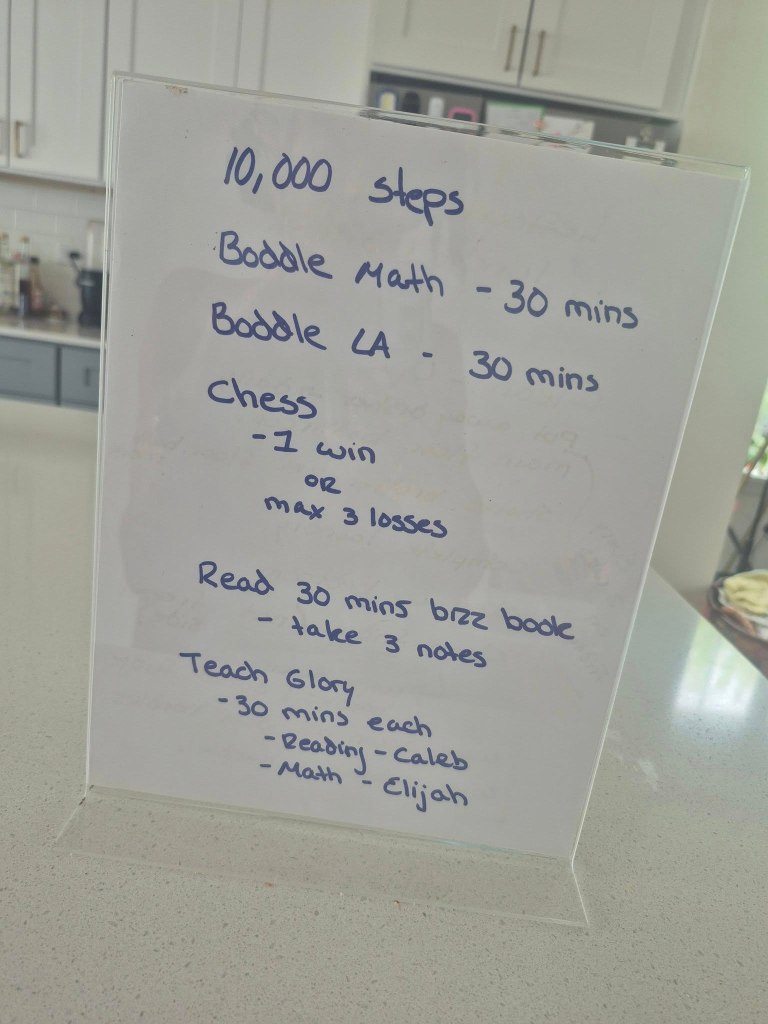 10,000 steps
Boddle Math - 30 mins
Boddle LA - 30 mins
Chess
- 1 win
OR
max 3 losses
Read 30 mins bizz book
- take 3 notes
Teach Glory
- 30 mins each
- Reading - Caleb
- Math - Elijah